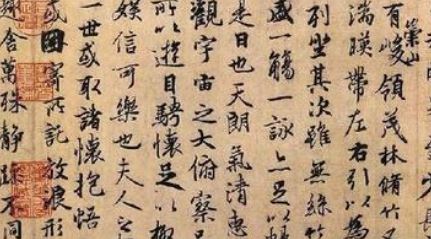 有崇山峻領茂林脩竹又
湍暎帶左右引以為
列坐其次雖無絲竹
盛一觴一詠亦足以暢
是日也天朗氣清惠
觀宇宙之大俯察品
所以遊目騁懷足以極
娛信可樂也夫人之
一世或取諸懷抱悟
或因寄所託放浪形
趣舍萬殊靜躁不同